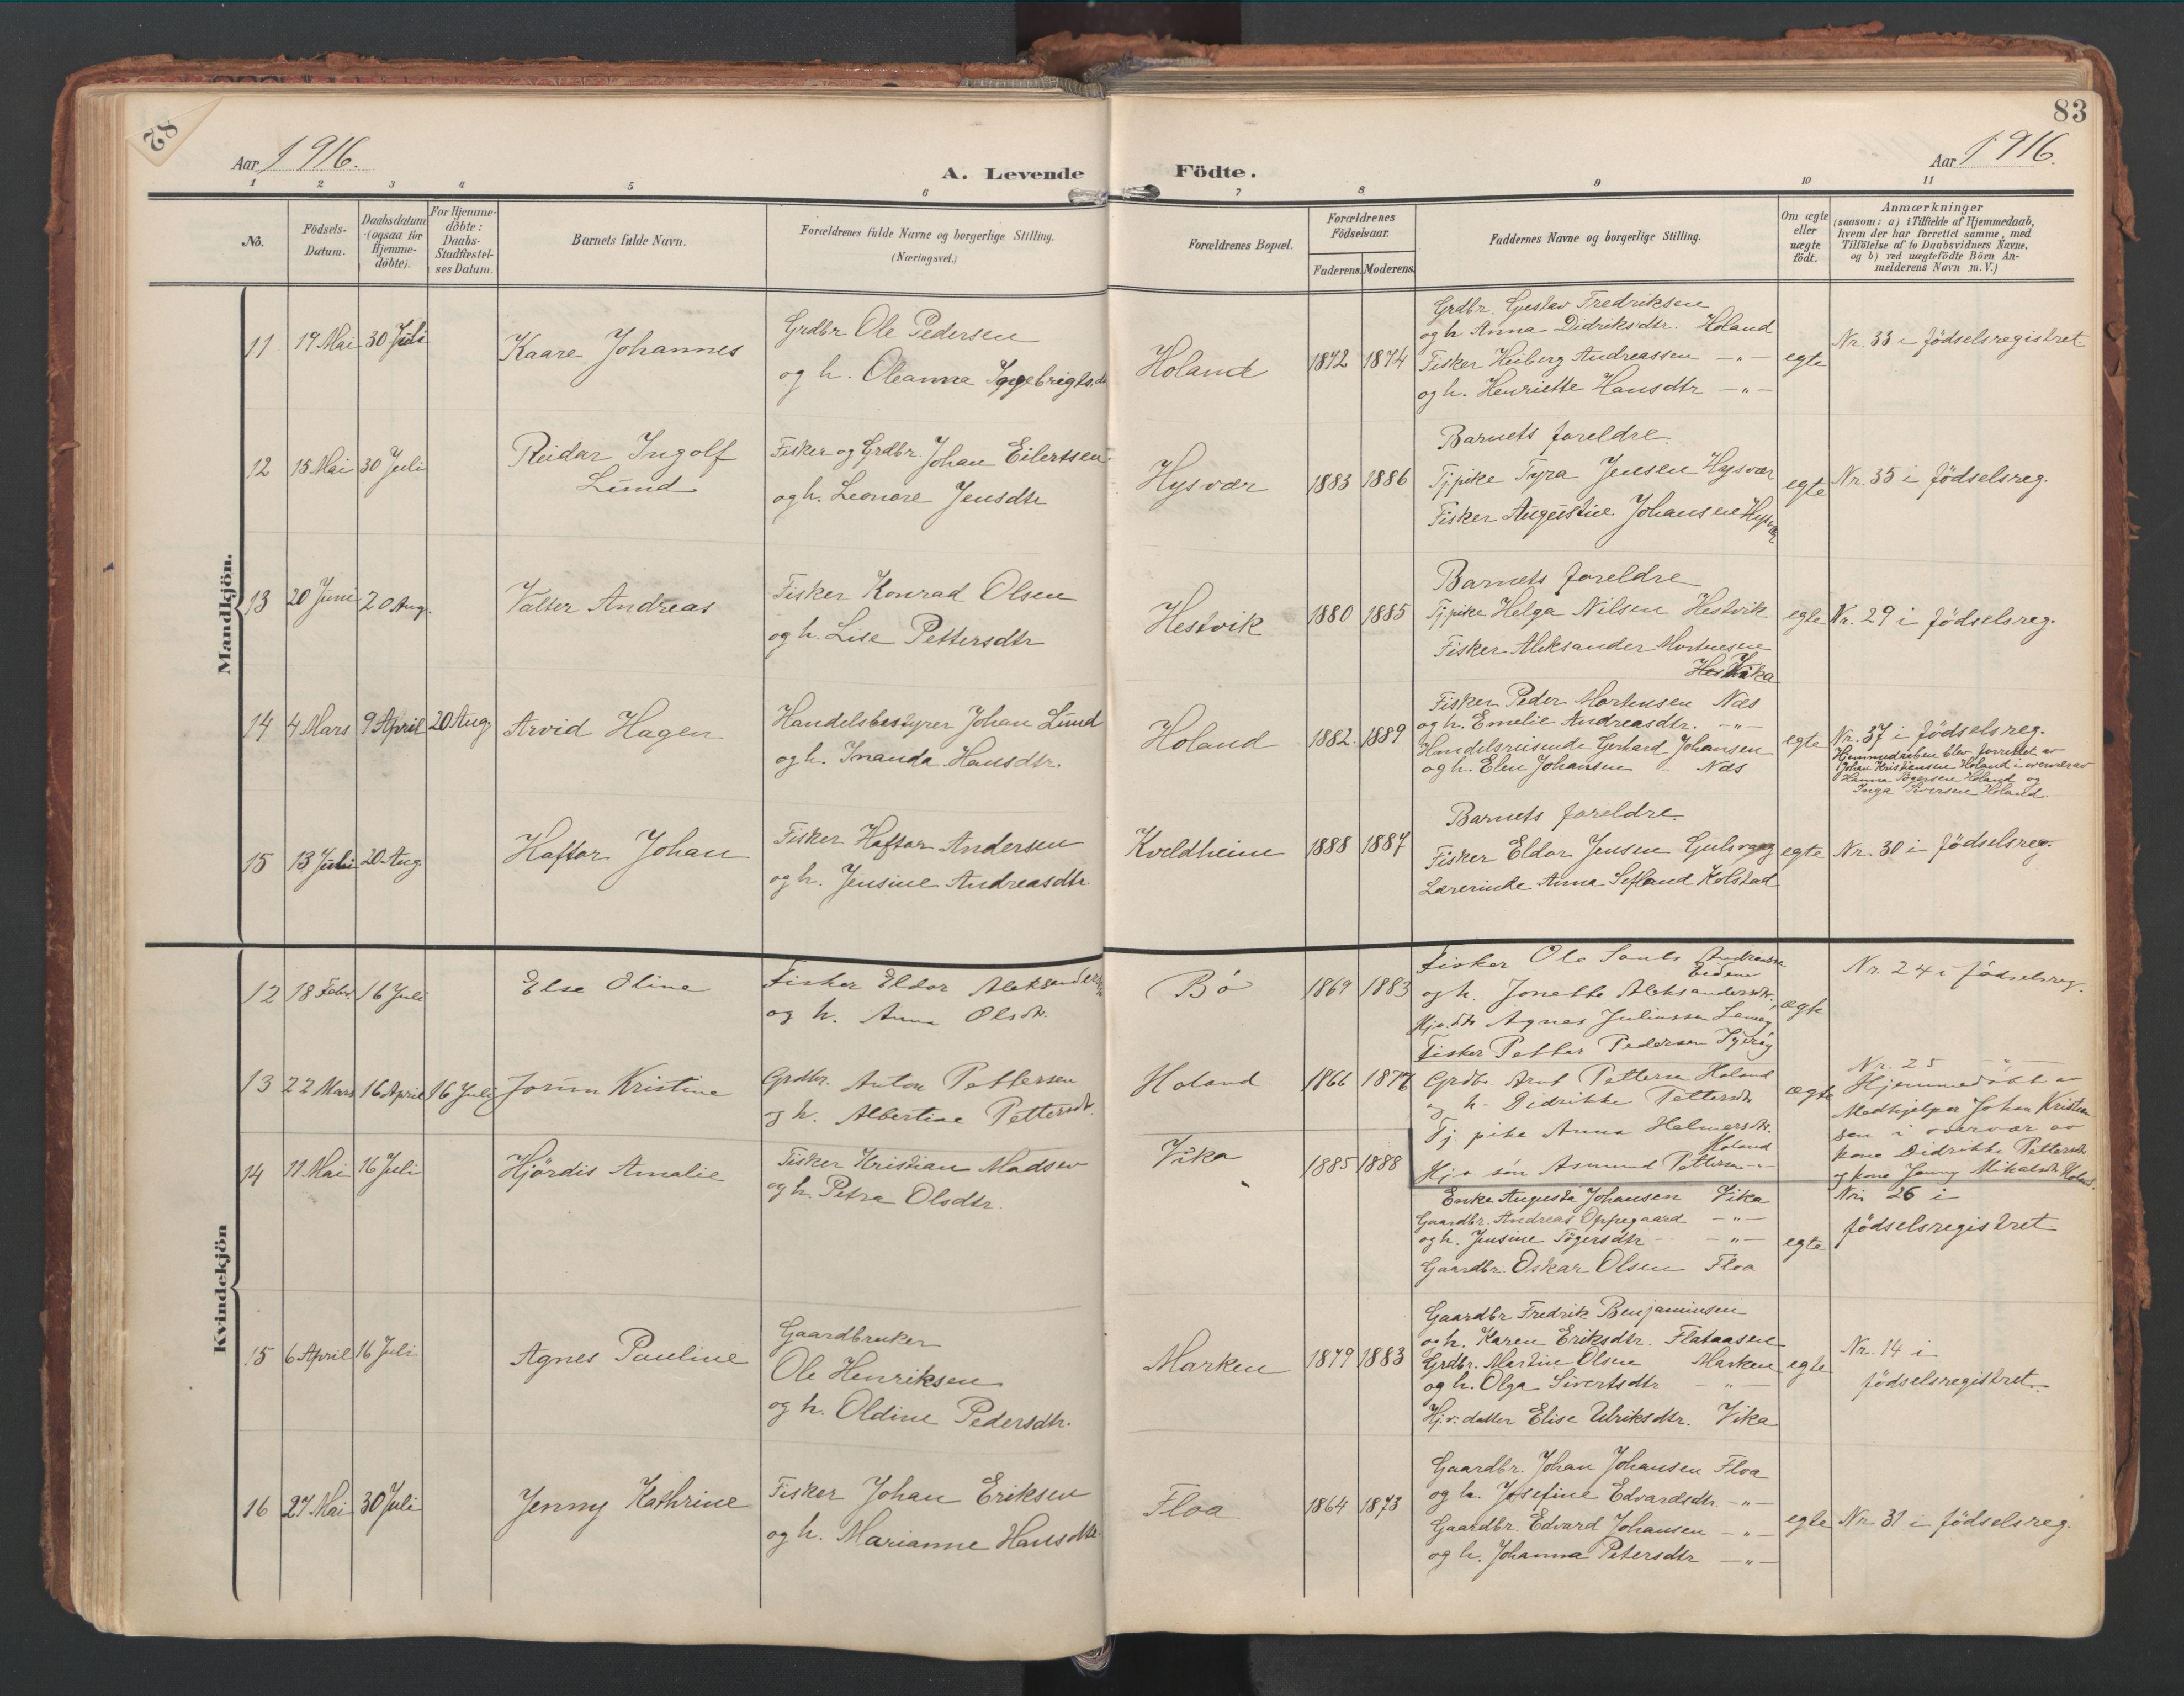 82
Aar 1916.
A. Levende
1 2 3 4 5 6
Nô.
Födsels-
Datum.
Daabsdatum
(ogsaa for
Hjemme-
döbte).
For Hjemme-
döbte:
Daabs-
Stadfæstel-
ses Datum.
Barnets fulde Navn.
Forældrenes fulde Navne og borgerlige Stilling.
(Næringsvei.)
83
Aar 1916.
Födte.
7 8 9 10 11
Forældrenes Bopæl.
Forældrenes
Födselsaar.
Faderens. Moderens.
Faddernes Navne og borgerlige Stilling.
Om ægte
eller
uægte
födt.
Anmærkninger
(saasom: a) i Tilfælde af Hjemmedaab,
hvem der har forrettet samme, med
Tilföielse af to Daabsvidners Navne.
og b) ved uægtefödte Börn An-
melderens Navn m. V.)
Mandkjön.
11 19 Mai 30 Juli
Kaare Johannes
Grdbr Ole Pedersen
og h. Oleanna Ingebrigtsd
Holand 1872 1874
Grdbr. Gustav Fredriksen
og h Anna Didriksdtr. Holand
Fisker Heiberg Andreassen - " -
og h. Henriette Hansdtr - " -
egte
Nr. 33 i födselsregistret.
12 15 Mai 30 Juli
Reidar Ingolf
Lund
Fisker og Grdbr. Johan Eilertsen
og h. Leonore Jensdtr
Hysvær 1883 1886
Barnets foreldre.
Tj.pike Tyra Jensen Hysvær
Fisker Augustine Johansen Hysvær
egte
Nr. 35 i födselsreg.
13 20 Juni 20 Aug.
Valter Andreas
Fisker Konrad Olsen
og h. Lise Pettersdtr
Hestvik 1880 1885
Barnets foreldre
Tj.pike Helga Nilsen Hestvik
Fisker Aleksander Mortensen
Vika
egte
Nr. 29 i födselsreg.
14 4 Mars 9 April 20 Aug
Arvid Hagen
Handelsbestyrer Johan Lund
og h. Inanda Hansdtr.
Holand 1882 1889
Fisker Peder Mortensen Næs
og h. Emelie Andreasdtr. - " -
Handelsreisende Gerhard Johansen
og h. Elen Johansen - Næs
egte
Nr. 37 i födselsreg.
Hjemmedaaben blev forrettet av
Johan Kristiansen Holand i overvær av
Hanna Tögersen Holand og
Inga Iversen Holand.
15 13 Juli 20 Aug.
Haftor Johan
Fisker Haftor Andersen
og h. Jensine Andreasdtr.
Kveldheim 1888 1887
Barnets foreldre.
Fisker Eldor Jensen Gulsvaag
Lærerinde Anna Kolstad
egte
Nr. 30 i födselsreg.
Kvindekjön
12 18 Febr. 16 Juli
Else Oline
Fisker Eldor Aleksandersen
og h. Anna Olsdtr.
Bö 1869 1883
Fisker Ole Andreassen
og h. Jonette Aleksandersdtr.
Agnes Juliussen
Fisker Petter Pedersen
ægte
Nr. 24 i födselsreg.
13 22 Mars 16 April 16 Juli
Jorunn Kristine
Grdbr. Anton Pettersen
og h. Albertine Pettersdtr.
Holand 1866 1877
Grdbr. Arnt Pettersen Holand
og h. Didrikke Pettersdtr
Tj pike Anna Helmersdtr.
Holand
Hj.v sön Asmund Pettersen - " -
ægte
Nr. 25 - " -
Hjemmedöbt av
Medhjelper Johan Kristian
sen i overvær av
kone Didrikke Pettersdtr
og kone Jenny Mikalsdtr Holand.
14 11 Mai 16 Juli
Hjördis Amalie
Fisker Kristian Madsen
og h. Petra Olsdtr.
Vika 1885 1888
Enke Augusta Johansen Vika
Gaardbr. Andreas Oppegaard - " -
og h. Jensine Tögersdtr - " -
Gaardbr. Oskar Olsen Floa
egte
Nr. 26 i
födselsregistret
15 6 April 16 Juli
Agnes Pauline
Gaardbruker
Ole Henriksen
og h. Oldine Pedersdtr.
Marken 1879 1883
Gaardbr Fredrik Benjaminsen
og h. Karen Eriksdtr. Flataasen
Grdbr. Martin Olsen Marken
og h. Olga Sivertsdtr - " -
Hj.v. datter Elise Ulriksdtr. Vika
egte
Nr. 14 i
födselsregistret.
16 27 Mai 30 Juli
Jenny Kathrine
Fisker Johan Eriksen
og h. Marianne Hansdtr
Floa 1864 1873
Gaardbr. Johan Johansen Floa
og h. Josefine Edvardsdtr. - " -
Gaardbr. Edvard Johansen - " -
og h. Johanna Petersdtr - " -
egte
Nr. 31 i födselsreg.